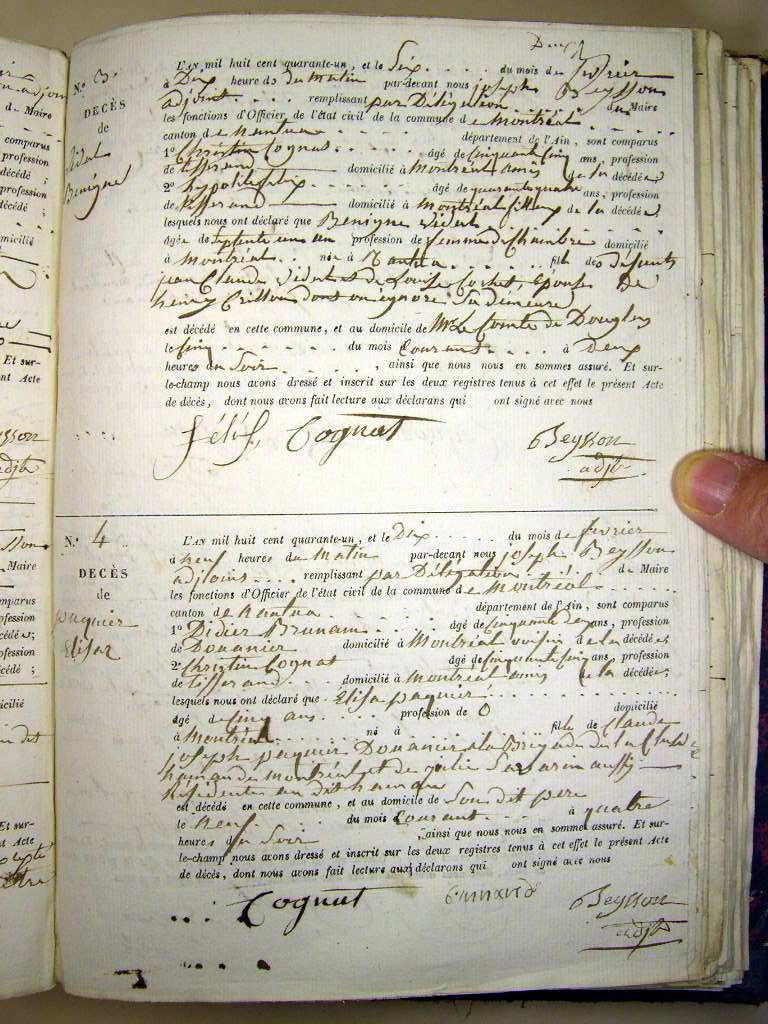 N.º 3.
DÉCÈS
de
Vidat
Benigne
L'AN mil huit cent quarante-un, et le Six . . . . du mois de fevrier
à Dix heures du Matin par-devant nous joseph Beysson
adjoint . . . . remplissant par Délégation . . . . . du Maire
les fonctions d'Officier de l'état civil de la commune de Montréal . . . .
canton de Nantua . . . . . . . département de l'Ain, sont comparus
1º Christin Cognat . . . . . âgé de cinquante cinq ans, profession
de tisserand domicilié à Montréal amis de la décédée
2º hypolite felix . . . . . âgé de quarante quatre ans, profession
de tisserand domicilié à Montréal de la décédée,
lesquels nous ont déclaré que Benigne Vidat . . . . . .
âgée de septente un an profession de femme de Chambre domicilié
à Montréal . . née à Nantua . . . . . . . fille des défunts
jean Claude Vidat et de Louise Cochet, Épouse De
henry Crillon dont on ignore Sa demeure
est décédé en cette commune, et au domicile de Mr. Le Comte de Douglas
le cinq . . . . . . du mois Courant . . . . à Deux
heures du Soir . . . . . , ainsi que nous nous en sommes assuré. Et sur-
le-champ nous avons dressé et inscrit sur les deux registres tenus à cet effet le présent Acte
de décès, dont nous avons fait lecture aux déclarans qui ont signé avec nous
félix Cognat Beysson
adjt
N.º 4
DÉCÈS
de
paquier
Elisa
L'AN mil huit cent quarante-un, et le Dix . . . . . du mois de fevrier
à neuf heures du Matin par-devant nous joseph Beysson
adjoint . . . . remplissant par Délégation . . . . . du Maire
les fonctions d'Officier de l'état civil de la commune de Montréal . . . . . .
canton de Nantua . . . . . . . département de l'Ain, sont comparus
1º Didier Brunam . . . . . âgé de cinquante deux ans, profession
de Douanier domicilié à Montréal voisin de la décédée
2º Christin Cognat . . . . . âgé de cinquante cinq ans, profession
de tisserand . . . . domicilié à Montréal amis de la décédée;
lesquels nous ont déclaré que Elisa paquier . . . . . .
âgé de cinq ans . . . . profession de 0 domicilié
à Montréal . . . . . . . né à . . . . . . . fille de Claude
joseph paquier Douanier a la Brigade de la Cluse
hameau de Montréal et de julie Sararin aussy
Résidente au dit hameau
est décédé en cette commune, et au domicile de Son dit pere
le neuf . . . . . . du mois Courant . . . . à quatre
heures du Soir . . . . . , ainsi que nous nous en sommes assuré. Et sur-
le-champ nous avons dressé et inscrit sur les deux registres tenus à cet effet le présent Acte
de décès, dont nous avons fait lecture aux déclarans qui ont signé avec nous
Cognat Beysson
adjt